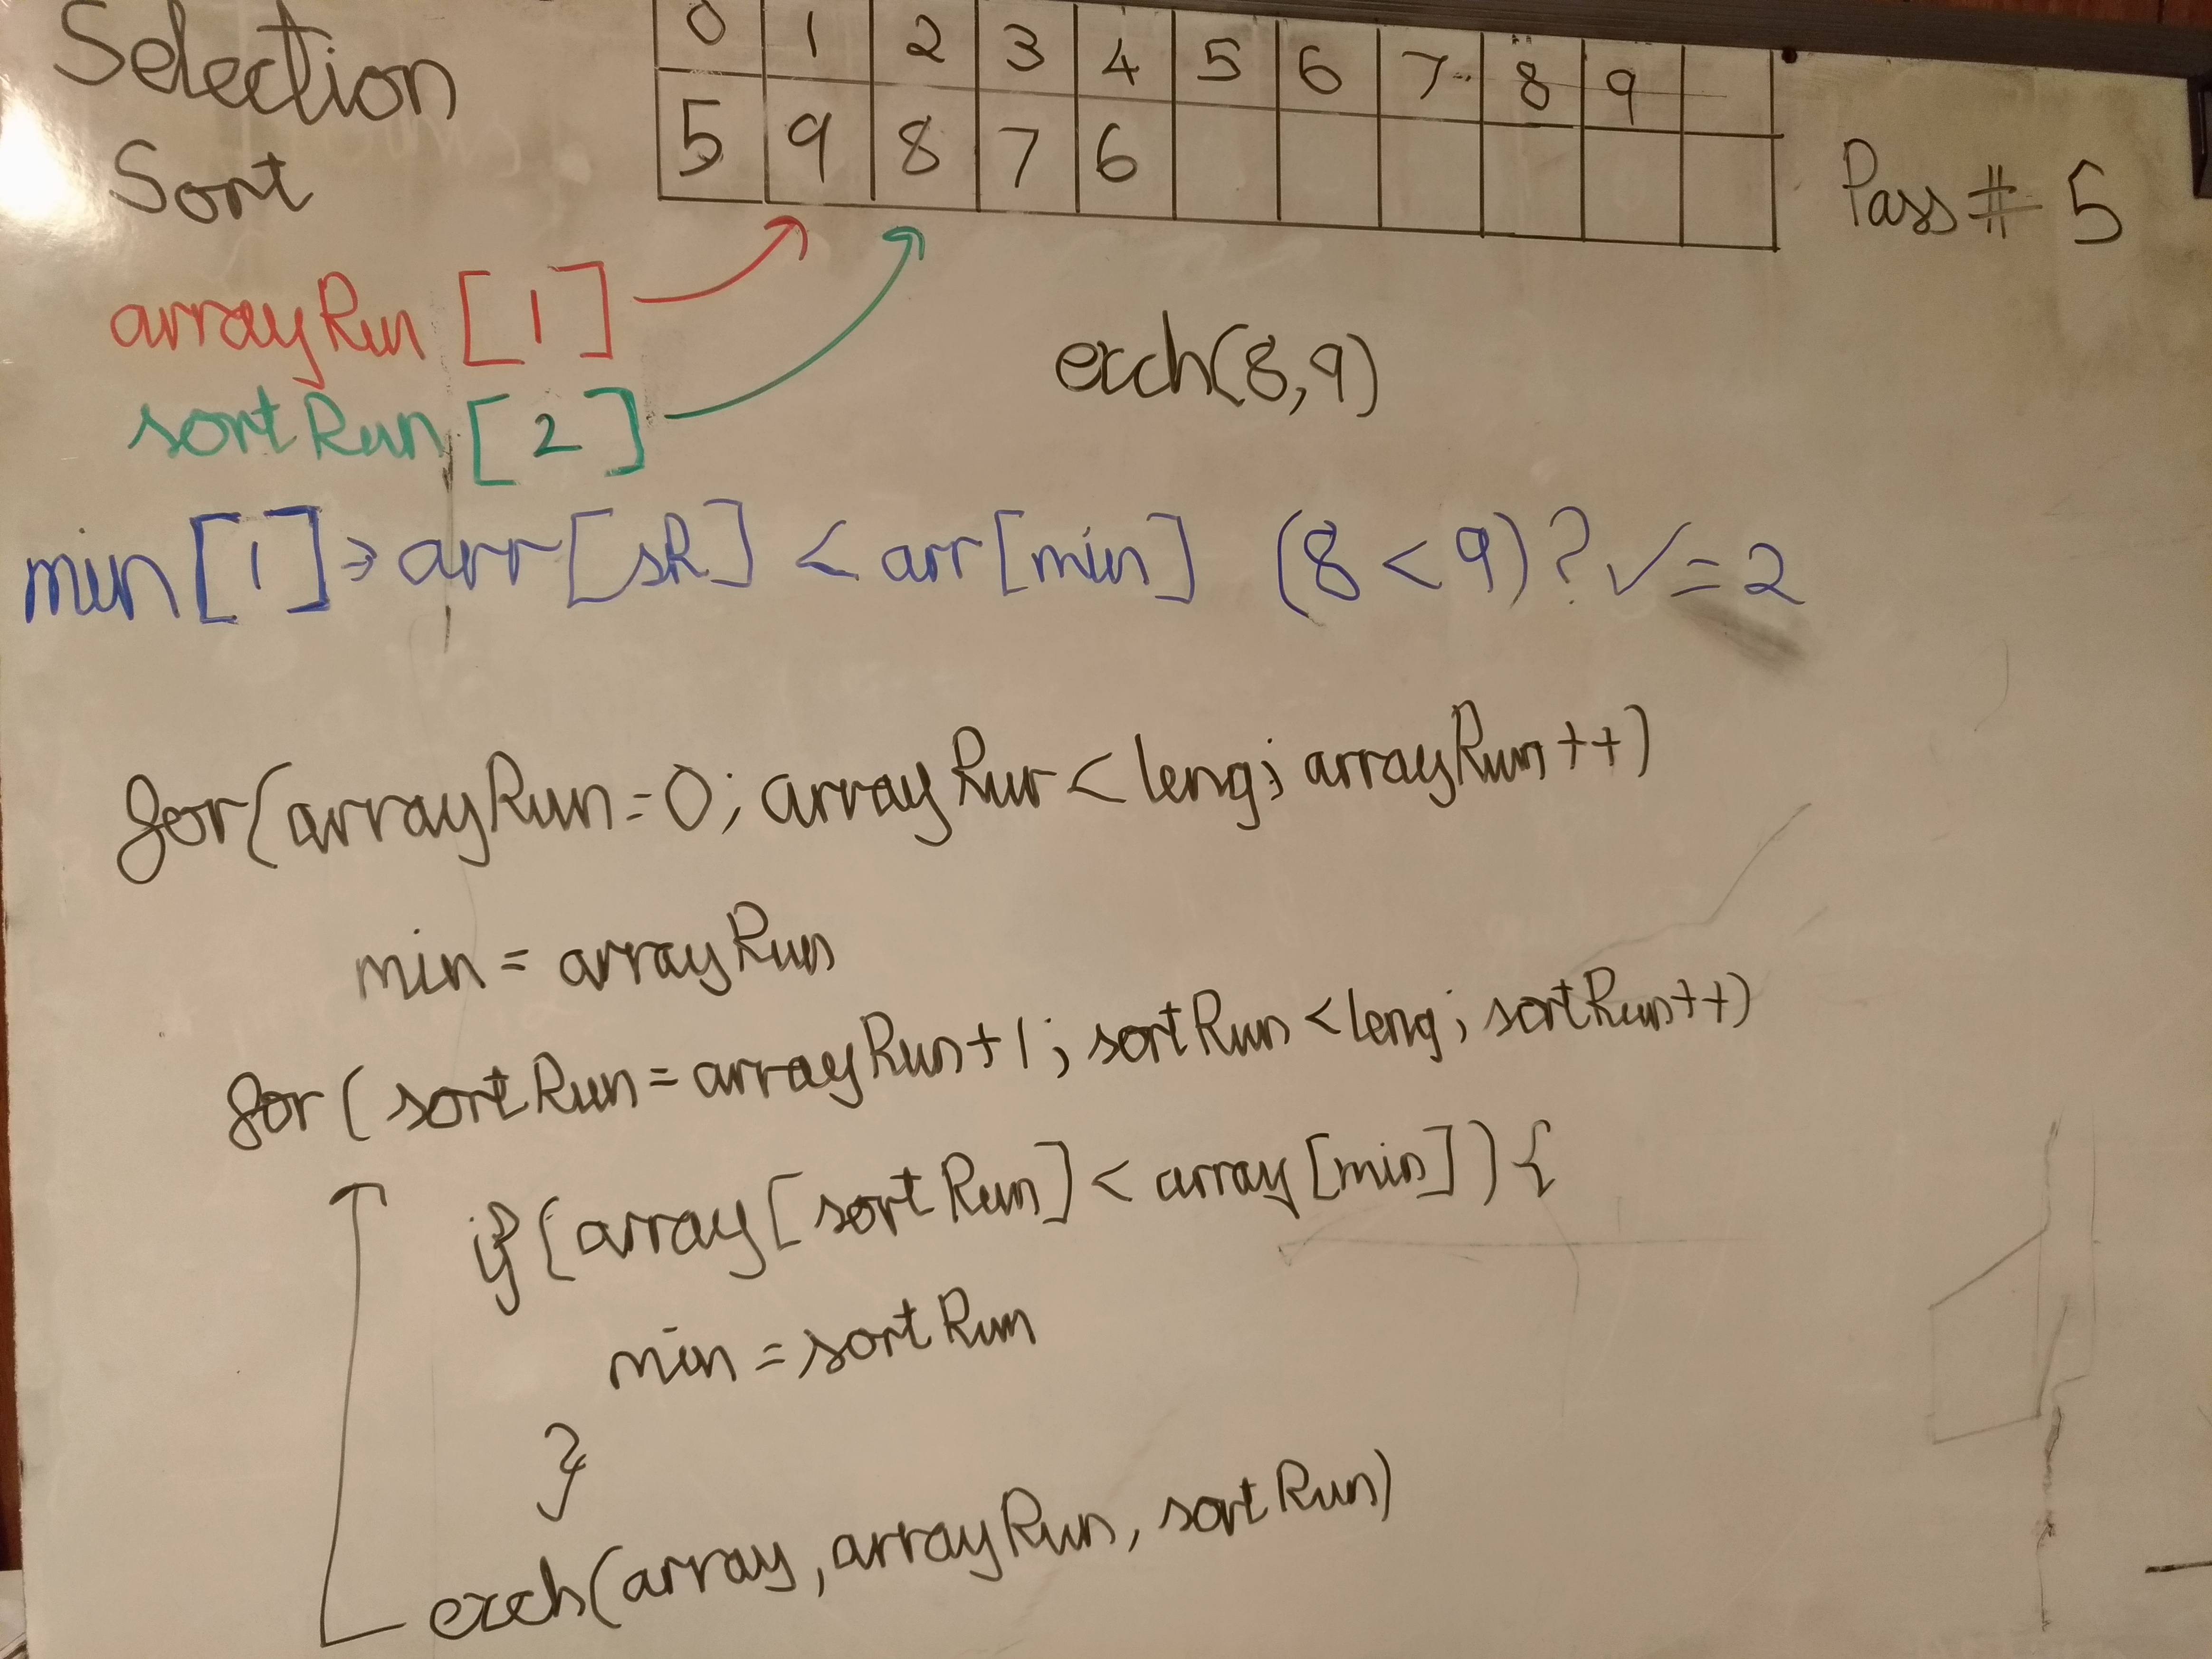 Selection
Sort
0 1 2 3 4 5 6 7 8 9
5 9 8 7 6
Pass # 5
arrayRun [1]
sortRun [2]
exch(8,9)
min[1] → arr[sR] < arr[min] (8 < 9)? ✓ = 2
for(arrayRun=0; arrayRun < leng; arrayRun++)
min = arrayRun
for( sortRun = arrayRun+1; sortRun < leng; sortRun++)
if(array[sortRun] < array[min]){
min = sortRun
}
exch(array, arrayRun, sortRun)